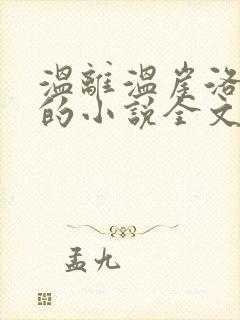 溫離溫崖洛
的小說全文
孟九